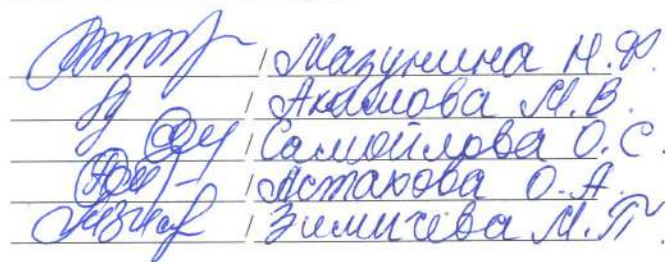 / Мазунина Н.Ф.
/ Акашова М.В.
/ Самойлова О.С.
/ Астахова О.А.
/ Зимичева М.П.